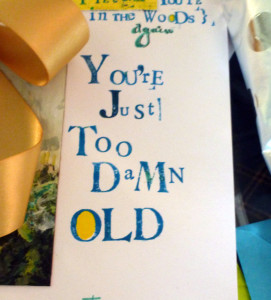 You're
in the Woods},
again
You're
Just
Too
DaMn
OLD